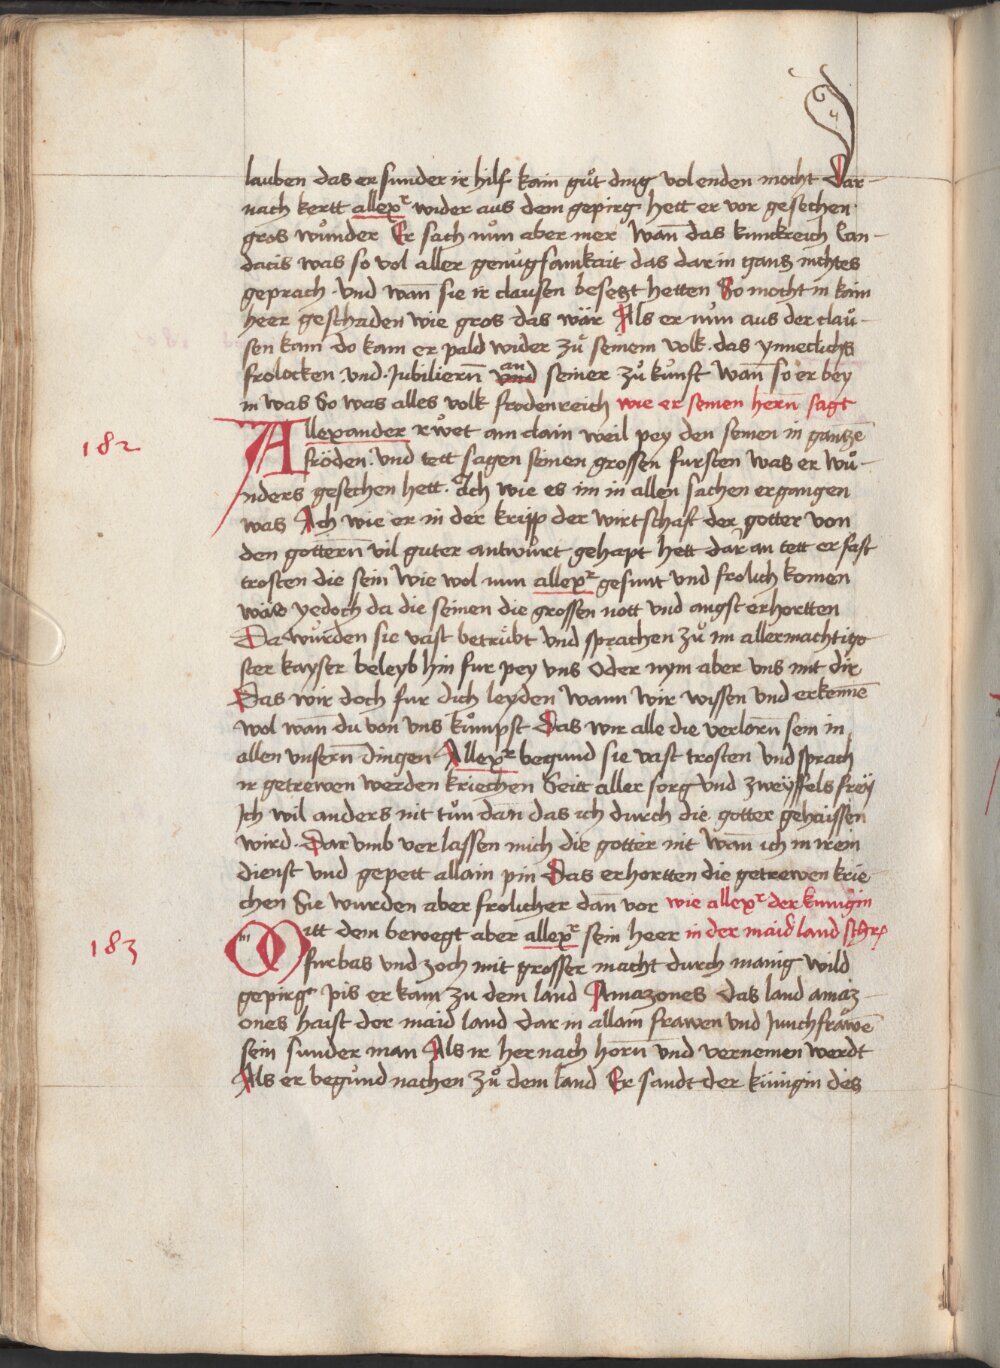 lauben das er sunder ir hilf kain gůt ding volenden mocht Dar-
nach kertt allexr wider aus dem gepirg hett er vor gesechen
gros wůnder Er sach nůn aber mer wan̄ das kunckreich Can-
dacis was so vol aller genůgsamkait das darin gans nichtes
geprach Vnd wan̄ sie ir clausen besetzt hetten So mocht in kain
heer geschaden wie gros das wär Als er nůn aus der claů-
sen kam do kam er pald wider zů seinem volk das ynneclichs
frolocken vnd Jubiliern̄ vnd an seiner zůkůnft wan̄ so er bey
in was So was alles volk frodenreich wie er seinen hern̄ sagt
182 Allexander rwet ain clain weil pey den seinen in gantzē
fröden vnd tett sagen seinen grossen fursten was er wů-
nders gesechen hett Ach wie es im in allen sachen ergangen
was Ach wie er in der kripp der wirtschaft der gotter von
den gottern̄ vil guter antwůrt gehapt hett dar an tett er fast
trosten die sein Wie wol nun allexr gesunt vnd frolich komen
was yedoch da die seinen die grossen nott vnd angst erhortten
Da wůrden sie vast betrůbt vnd sprachen zů im allermachtigo
ster kayser beleyb hin fur pey vns Oder nym aber vns mit dir
Das wir doch fur dich leyden wann wir wissen vnd erkennē
wol wan̄ du von vns kůmpst Das wir alle die verlorn̄ sein in
allen vnsern̄ dingen Allexr begund sie vast trosten vnd sprach
ir getrewen werden kriechen Seitt aller sorg vnd zweyffels frey
Ich wil anders nit tůn dan̄ das ich durch die gotter gehaissen
wird Darvmb verlassen mich die gotter nit wan̄ ich in irem
dienst vnd gepett allain pin Das erhortten die getrewen krie
chen Sie wurden aber frolicher dan̄ vor wie allexr der kunigin
183 Mitt dem bewegt aber allexr sein heer in der maid land schr
furbas vnd zoch mit grosser macht durch manig wild
gepirg pis er kam zu dem land Amazones das land amaz-
ones haist der maid land dar in allain frawen vnd Junchfrawē
sein sunder man Als ir hernach horn̄ vnd vernemen werdt
Als er begůnd nachen zů dem land Er sandt der kunigin des